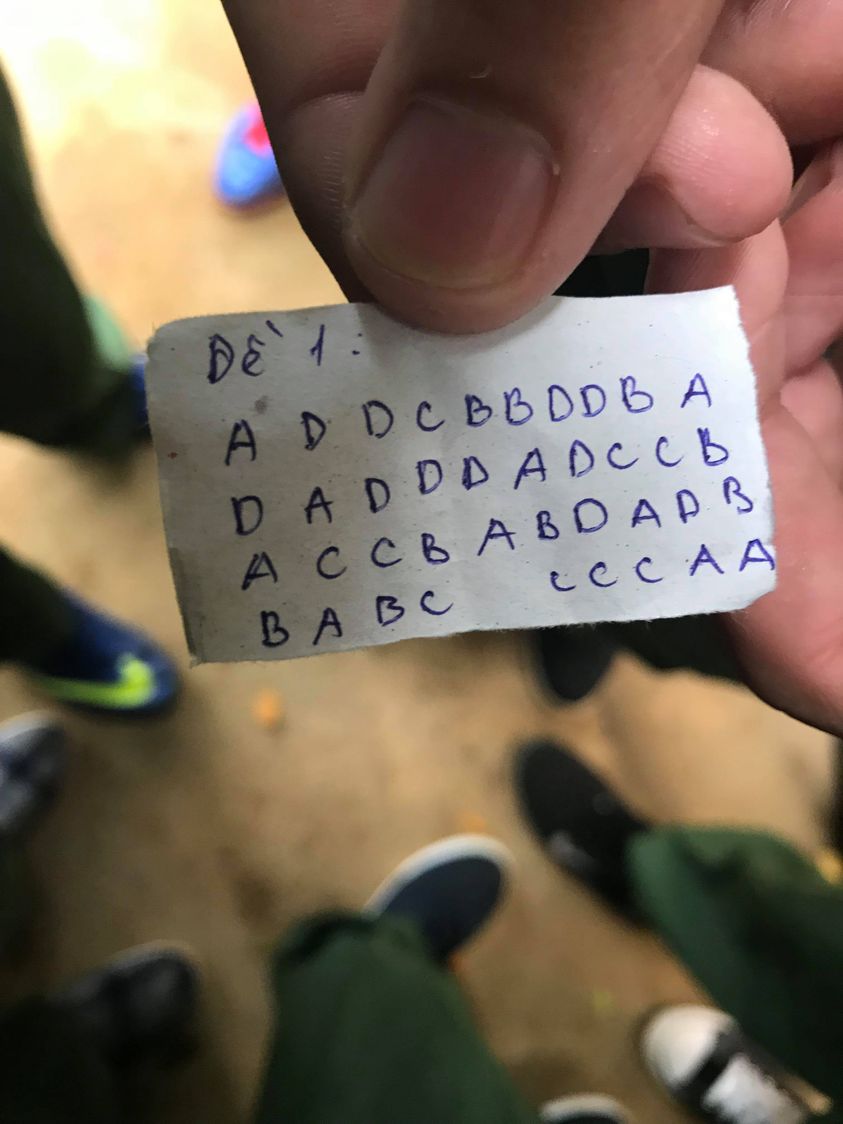 Đề 1:
A D D C B B D D B A
D A D D D A D C C B
A C C B A B D A D B
B A B C C C C A A